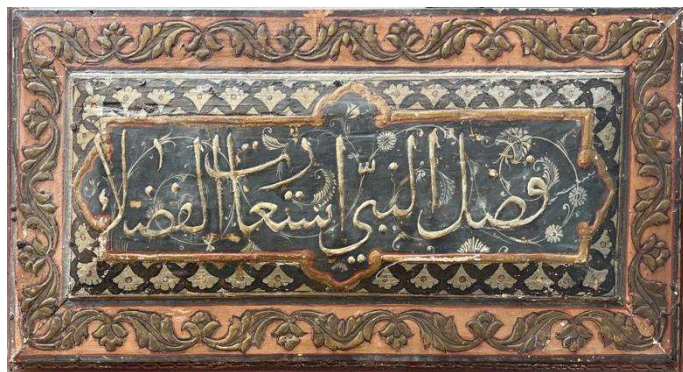 فضل النبيّ استعارت الفضلاء